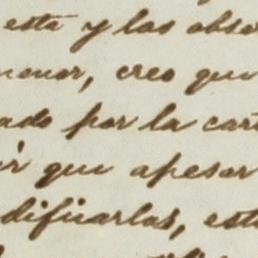 está y las obse
menor, creo que
ado por la cart
ir que apesar
difiuarlas, esta